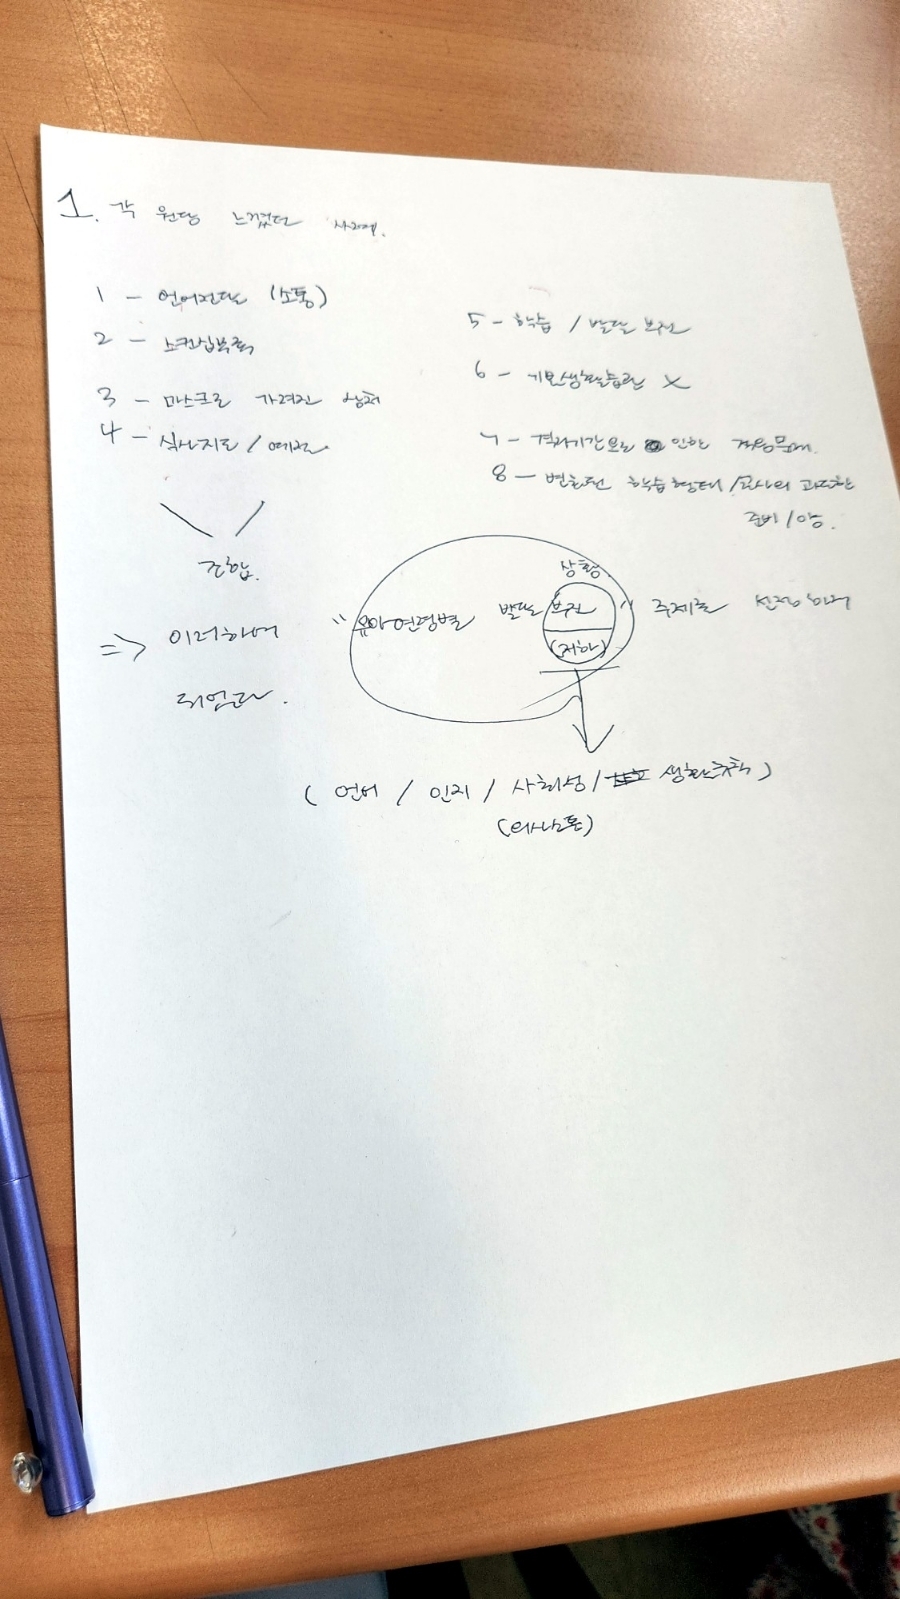 1. 각 원당 느꼈던 사례.
1 - 언어전달 (소통)
2 - 스킨십부족
3 - 마스크로 가려진 상처
4 - 식사지도 / 예절
조합.
5 - 학습 / 발달 부진
6 - 기본생활습관 X
7 - 격리기간으로 인한 적응문제.
8 - 변화된 학습형태 / 교사의 과도한
준비 / 양.
⇒ 이러하여
상황
"유아연령별 발달 부진" 주제로 선정하여
(저하)
되었다.
( 언어 / 인지 / 사회성 / 생활주책 )
(의사소통)